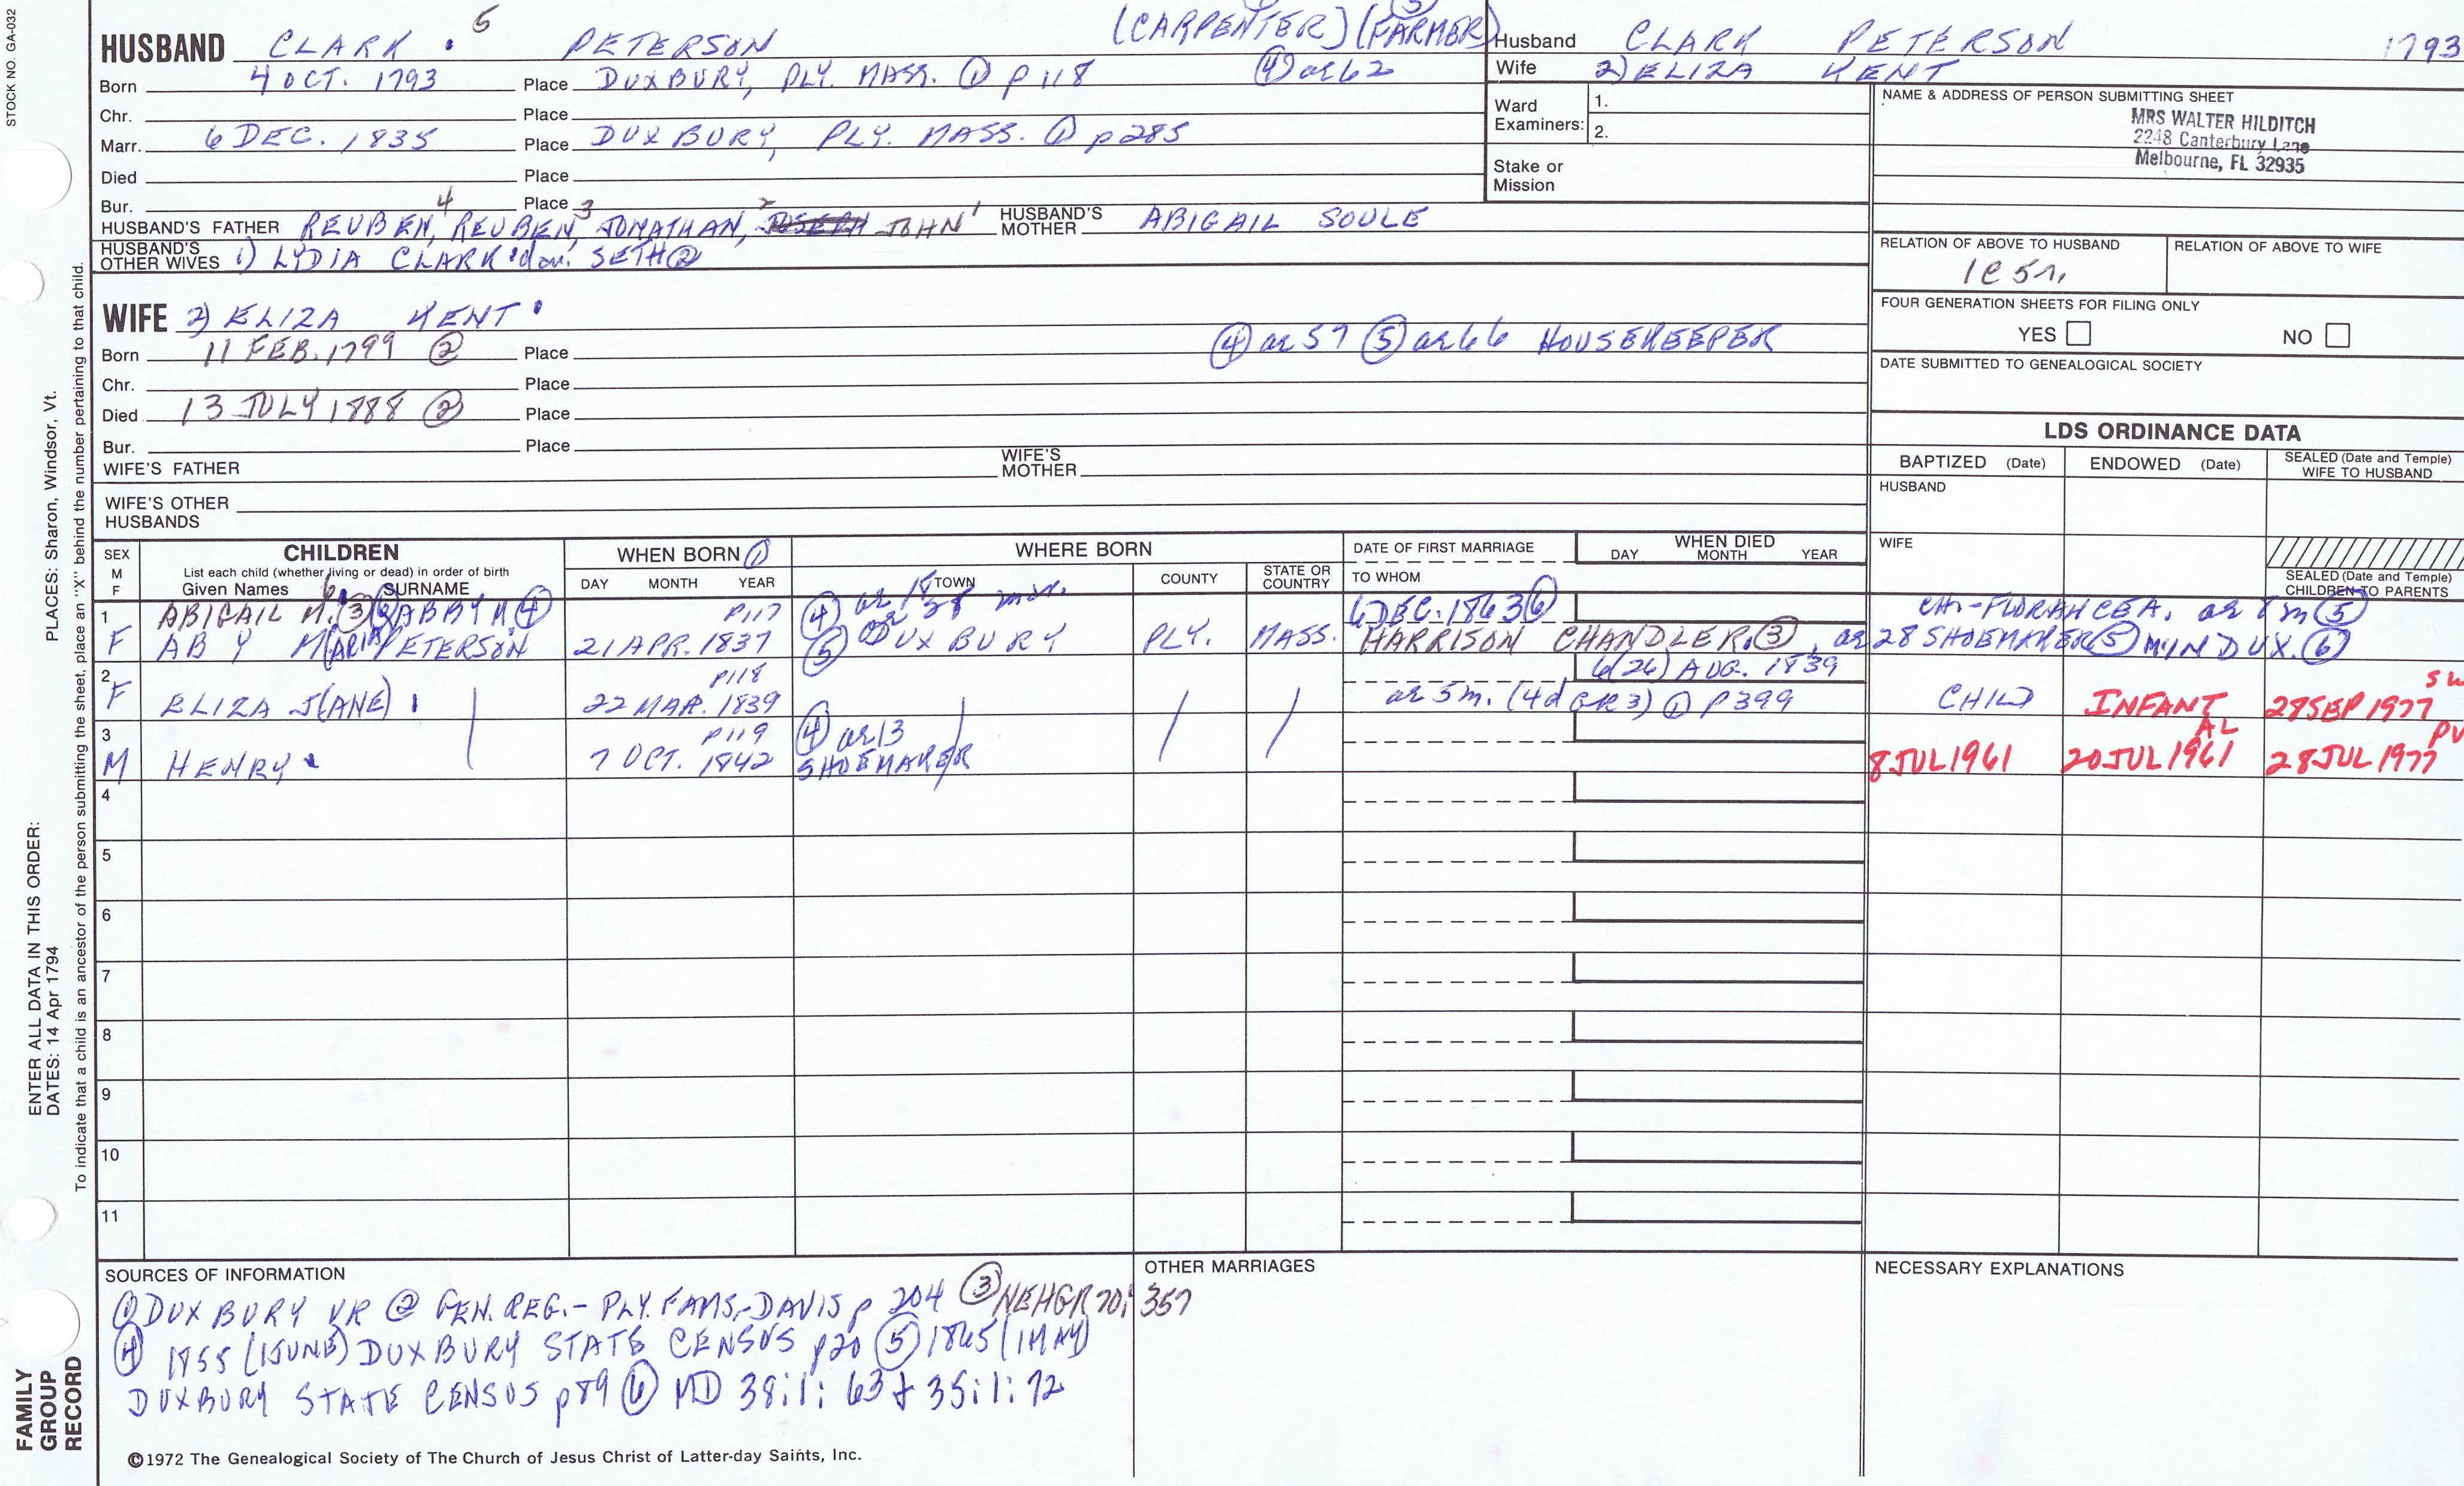 STOCK NO. GA-032
5 (CARPENTER) (FARMER)
HUSBAND CLARK . PETERSON
Born 4 OCT. 1793 Place DUXBURY, PLY. MASS. ① p 118 ④ ae 62
Chr. Place
Marr. 6 DEC. 1835 Place DUXBURY, PLY. MASS. ① p 285
Died Place
Bur. Place
HUSBAND'S FATHER REUBEN,4 REUBEN,3 JONATHAN,2 JOHN1 HUSBAND'S MOTHER ABIGAIL SOULE
HUSBAND'S OTHER WIVES 1) LYDIA CLARK dau. SETH ②
WIFE 2) ELIZA KENT
Born 11 FEB. 1799 ② Place ④ ae 57 ⑤ ae 66 HOUSEKEEPER
Chr. Place
Died 13 JULY 1888 ② Place
Bur. Place
WIFE'S FATHER WIFE'S MOTHER
WIFE'S OTHER HUSBANDS
Husband CLARK PETERSON 1793
Wife 2) ELIZA KENT
Ward Examiners: 1.
2.
Stake or Mission
NAME & ADDRESS OF PERSON SUBMITTING SHEET
MRS WALTER HILDITCH
2248 Canterbury Lane
Melbourne, FL 32935
RELATION OF ABOVE TO HUSBAND RELATION OF ABOVE TO WIFE
1C 5r.
FOUR GENERATION SHEETS FOR FILING ONLY
YES NO
DATE SUBMITTED TO GENEALOGICAL SOCIETY
LDS ORDINANCE DATA
BAPTIZED (Date) ENDOWED (Date) SEALED (Date and Temple) WIFE TO HUSBAND
HUSBAND
WIFE
SEALED (Date and Temple) CHILDREN TO PARENTS
SEX M F CHILDREN WHEN BORN ① WHERE BORN DATE OF FIRST MARRIAGE WHEN DIED
List each child (whether living or dead) in order of birth DAY MONTH YEAR
Given Names SURNAME DAY MONTH YEAR TOWN COUNTY STATE OR COUNTRY TO WHOM
1 ABIGAIL M. ③ ABBY M ④ P117 ④ ae 18 6 DEC. 1863 ⑥ CH:-FLORANCE A. ae 8 m ⑤
F ABY M(ARIA) PETERSON 21 APR. 1837 ⑤ DUXBURY PLY. MASS. HARRISON CHANDLER. ③, ae 28 SHOEMAKER ⑤ M. IN DUX. ⑥
2 P118 6(26) AUG. 1839 SW
F ELIZA J(ANE) 22 MAR. 1839 ae 5 m. (4d GR 3) ① P399 CHILD INFANT 28 SEP 1977
3 P119 ④ ae 13 AL PV
M HENRY 7 OCT. 1842 SHOEMAKER 8 JUL 1961 20 JUL 1961 28 JUL 1977
4
5
6
7
8
9
10
11
SOURCES OF INFORMATION OTHER MARRIAGES NECESSARY EXPLANATIONS
① DUXBURY VR ② GEN. REG.- PLY. FAMS,-DAVIS p 204 ③ NEHGR 70: 357
④ 1855 (1 JUNE) DUXBURY STATE CENSUS p20 ⑤ 1865 (1 MAY)
DUXBURY STATE CENSUS p89 ⑥ MD 38:1: 63 & 35:1: 72
©1972 The Genealogical Society of The Church of Jesus Christ of Latter-day Saints, Inc.
PLACES: Sharon, Windsor, Vt.
ENTER ALL DATA IN THIS ORDER:
DATES: 14 Apr 1794
To indicate that a child is an ancestor of the person submitting the sheet, place an "X" behind the number pertaining to that child.
FAMILY
GROUP
RECORD